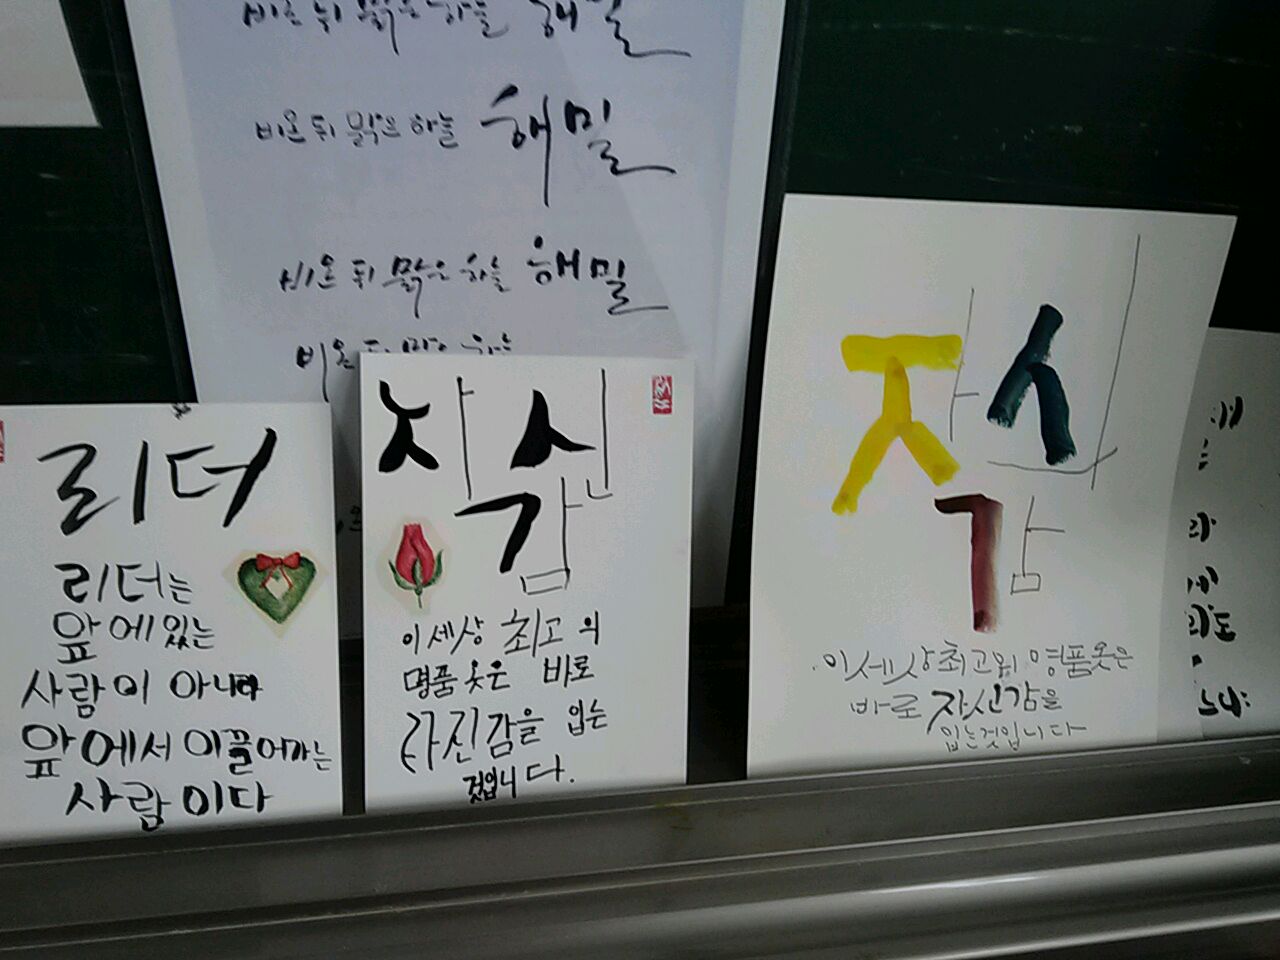 비온 뒤 맑은 하늘 해밀
비온 뒤 맑은 하늘 해밀
비온 뒤 맑은 하늘 해밀
비온 뒤 맑은 하늘
리더
리더는
앞에 있는
사람이 아니라
앞에서 이끌어가는
사람이다
자신
감
이 세상 최고의
명품 옷은 바로
자신감을 입는
것입니다.
자신
감
이 세상 최고의 명품 옷은
바로 자신감을
입는것입니다